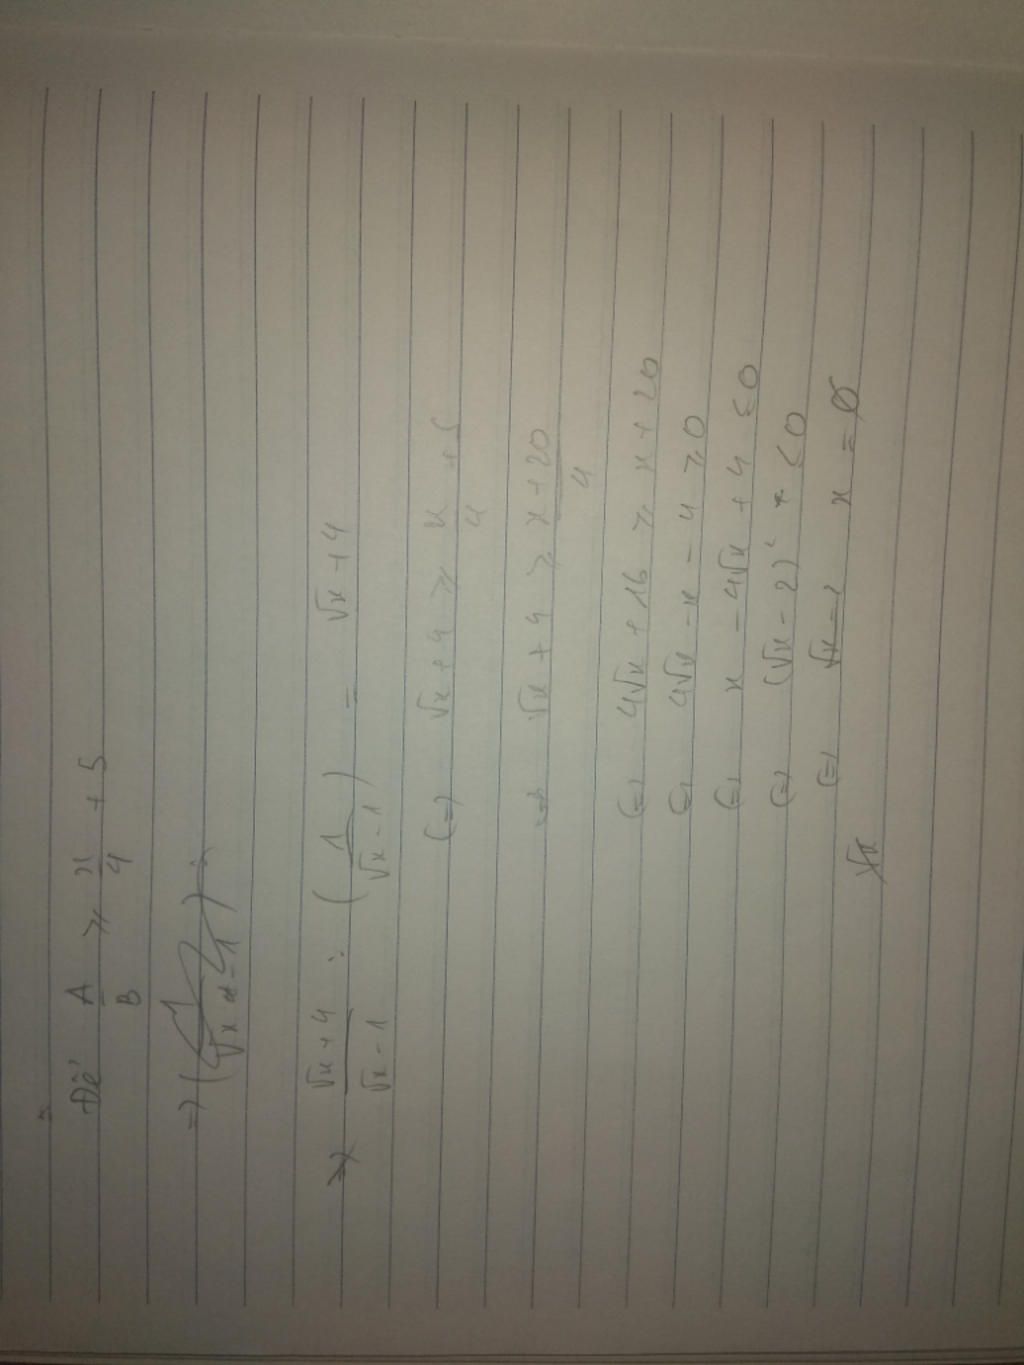 Để A/B ≥ x/4 + 5
=> (1/√x - 1) :
=> √x + 4/√x - 1 : (1/√x - 1) = √x + 4
(=) √x + 4 ≥ x/4 + 5
=> √x + 4 ≥ x + 20/4
(=) 4√x + 16 ≥ x + 20
(=) 4√x - x - 4 ≥ 0
(=) x - 4√x + 4 ≤ 0
(=) (√x - 2)² ≤ 0
(=) √x - 2 x = ∅
√x